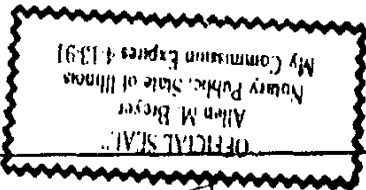 "OFFICIAL SEAL"
Allen M. Breyer
Notary Public, State of Illinois
My Commission Expires 4-13-91